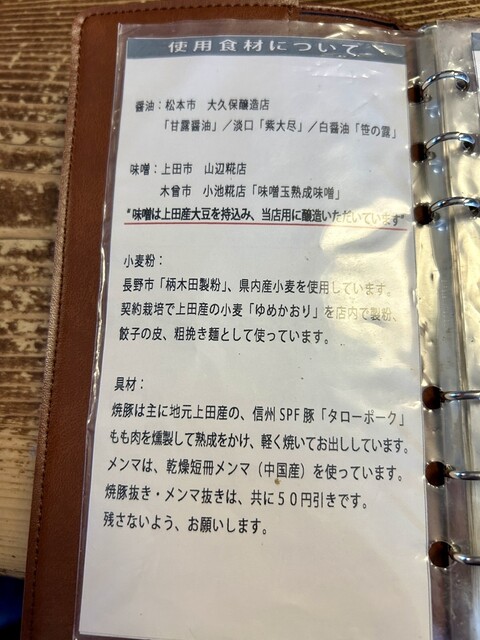 使用食材について
醤油：松本市　大久保醸造店
「甘露醤油」／淡口「紫大尽」／白醤油「笹の露」
味噌：上田市　山辺糀店
木曾市　小池糀店「味噌玉熟成味噌」
*味噌は上田産大豆を持込み、当店用に醸造いただいています*
小麦粉：
長野市「柄木田製粉」、県内産小麦を使用しています。
契約栽培で上田産の小麦「ゆめかおり」を店内で製粉、
餃子の皮、粗挽き麺として使っています。
具材：
焼豚は主に地元上田産の、信州SPF豚「タローポーク」
もも肉を燻製して熟成をかけ、軽く焼いてお出ししています。
メンマは、乾燥短冊メンマ（中国産）を使っています。
焼豚抜き・メンマ抜きは、共に５０円引きです。
残さないよう、お願いします。